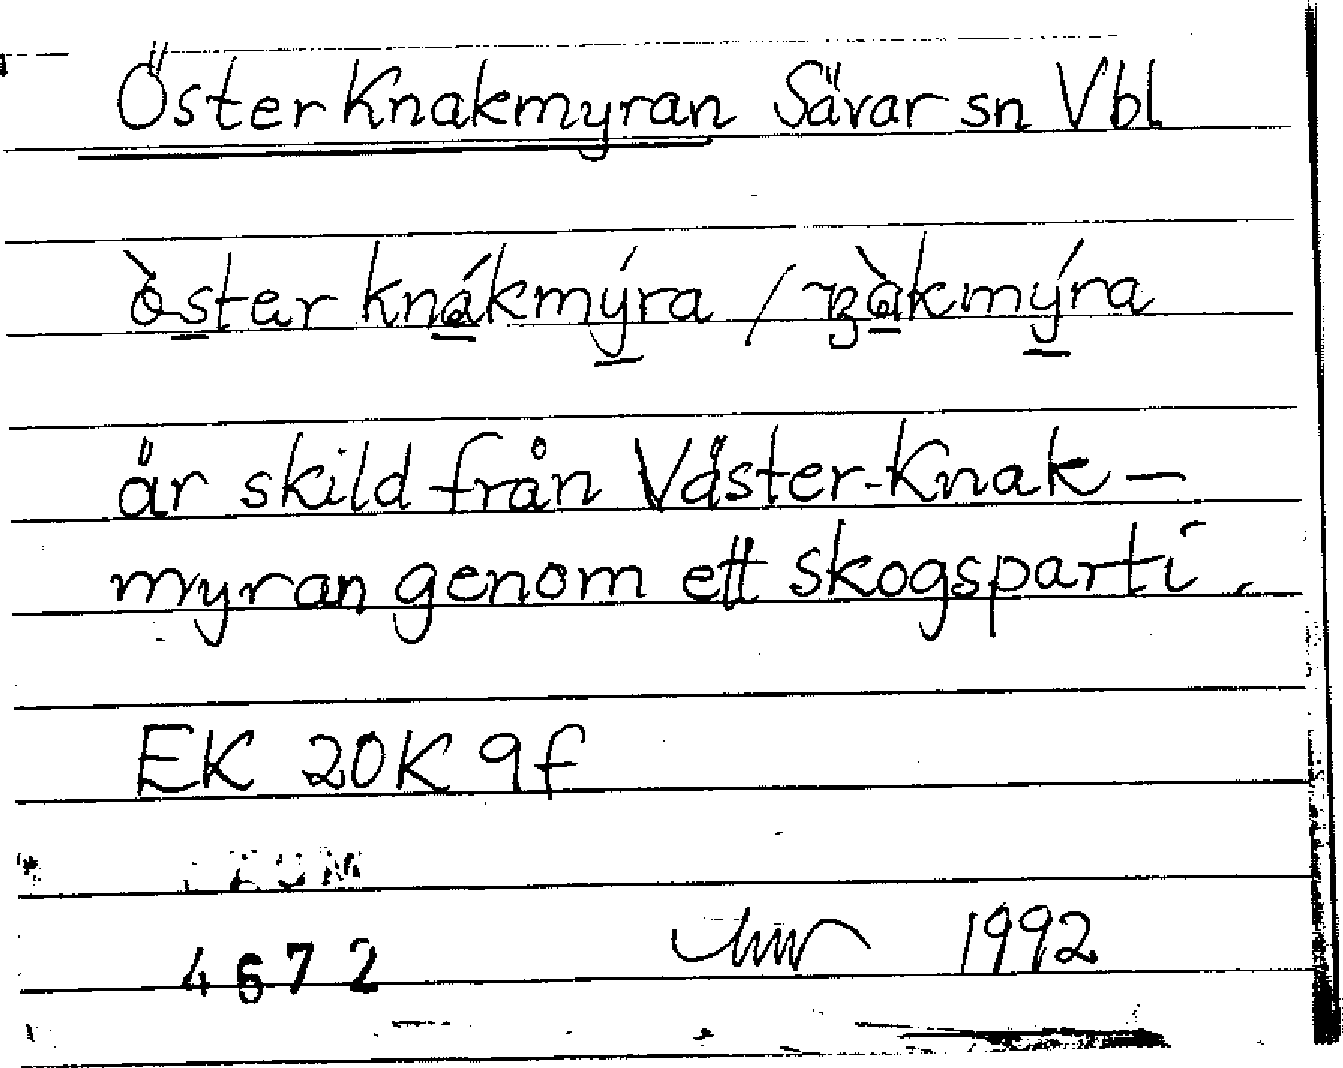 Öster Knakmyran Sävar sn Vbl
òster knákmýra / ŋàkmýra
är skild från Väster-Knak-
myran genom ett skogsparti.
EK 20K 9f
4672
1992